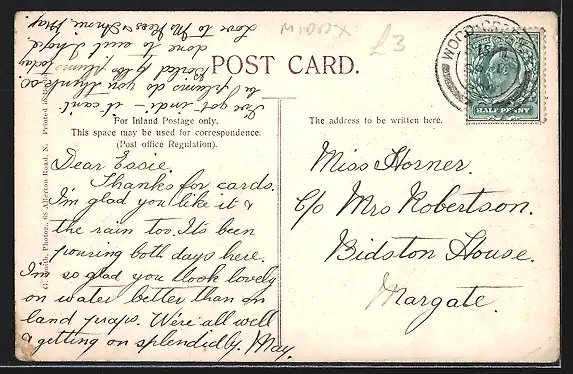 POST CARD.
For Inland Postage only.
This space may be used for correspondence.
(Post office Regulation).
The address to be written here.
Dear Essie.
Thanks for cards.
I'm glad you like it &
the rain too. Its been
pouring both days here.
I'm so glad you look lovely
on water better than on
land praps. We're all well
& getting on splendidly. May.
I've got indi – it can't
be plums do you thynk so.
Boiled lbs plums today
done to aunt Ingrid.
Love to Mr Rees & Annie. May
Miss Horner.
c/o Mrs Robertson.
Bidston House.
Margate.
WOOD GREEN
HALF PENNY
£3
Middx
Smith, Photor., 68 Allerton Road, N.